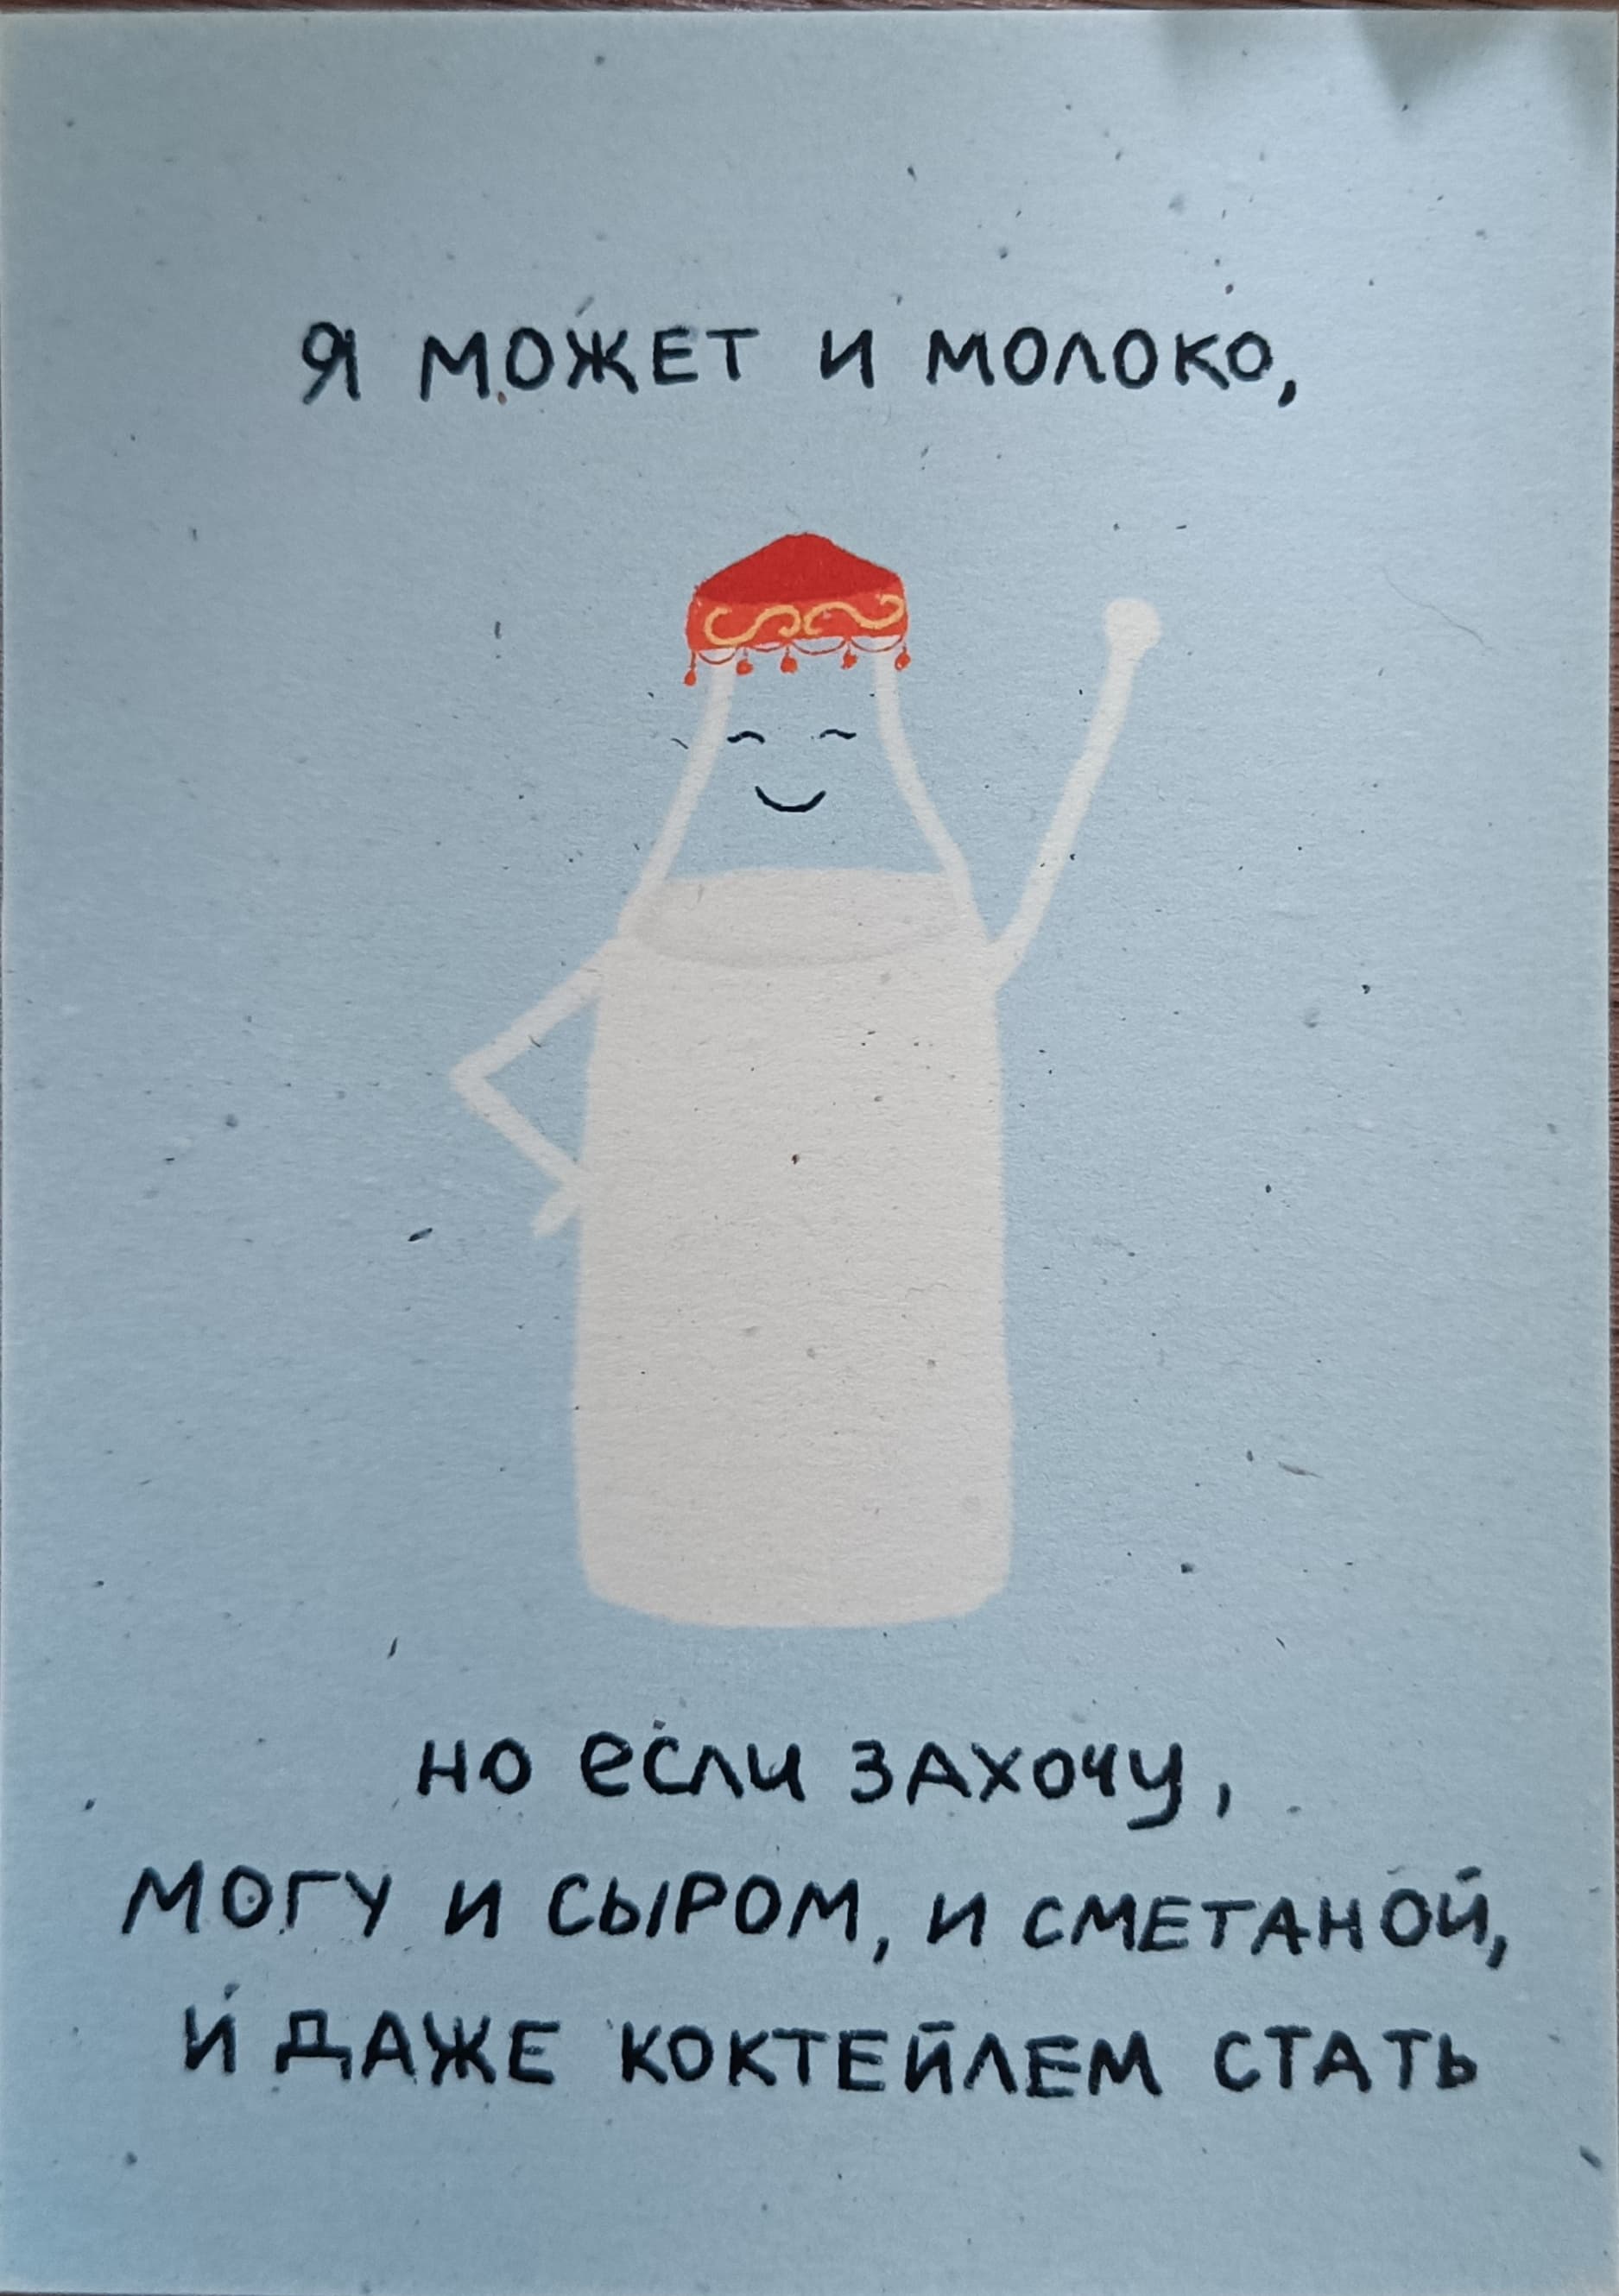 Я МОЖЕТ И МОЛОКО,
НО ЕСЛИ ЗАХОЧУ,
МОГУ И СЫРОМ, И СМЕТАНОЙ,
И ДАЖЕ КОКТЕЙЛЕМ СТАТЬ